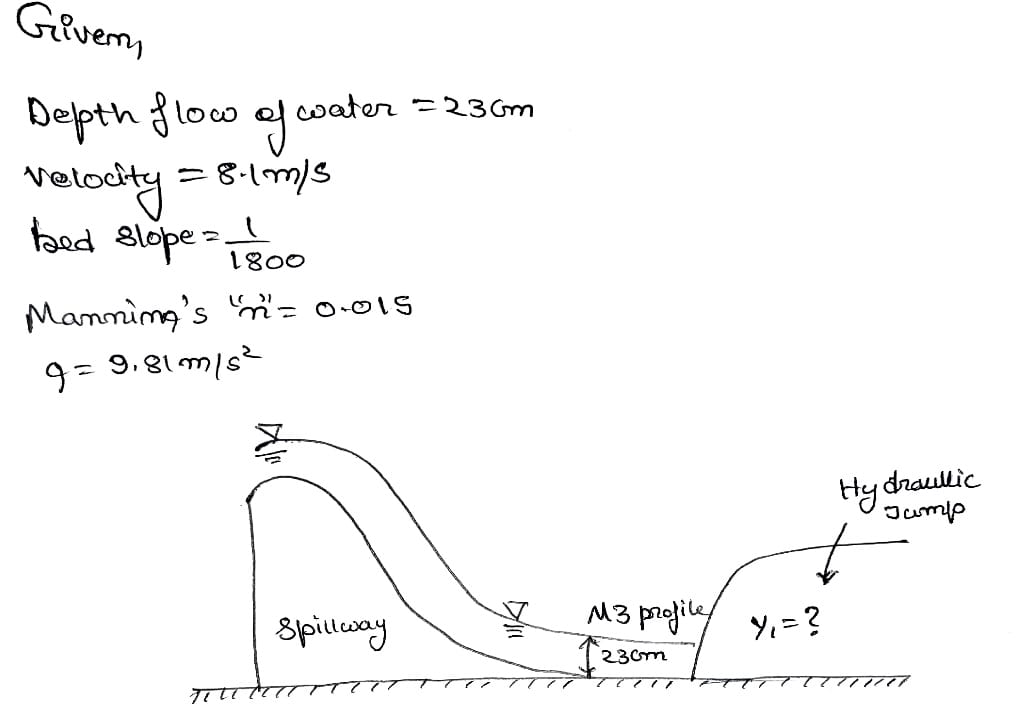 Given,
Depth flow of water = 23cm
velocity = 8.1m/s
bed slope = 1/1800
Manning's "n" = 0.015
g = 9.81m/s²
Hydraullic
Jump
M3 profile
y₁ = ?
Spillway
23cm